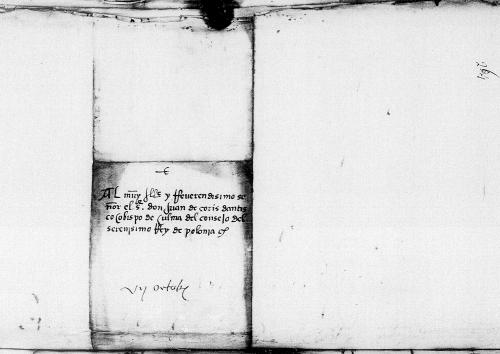 Al muy Ill.e y Reverendisimo se
ñor el S.r don Juan de coris dantis
co Cobispo de Culma del consejo del
serenisimo Rey de polonia etc
vij octobr